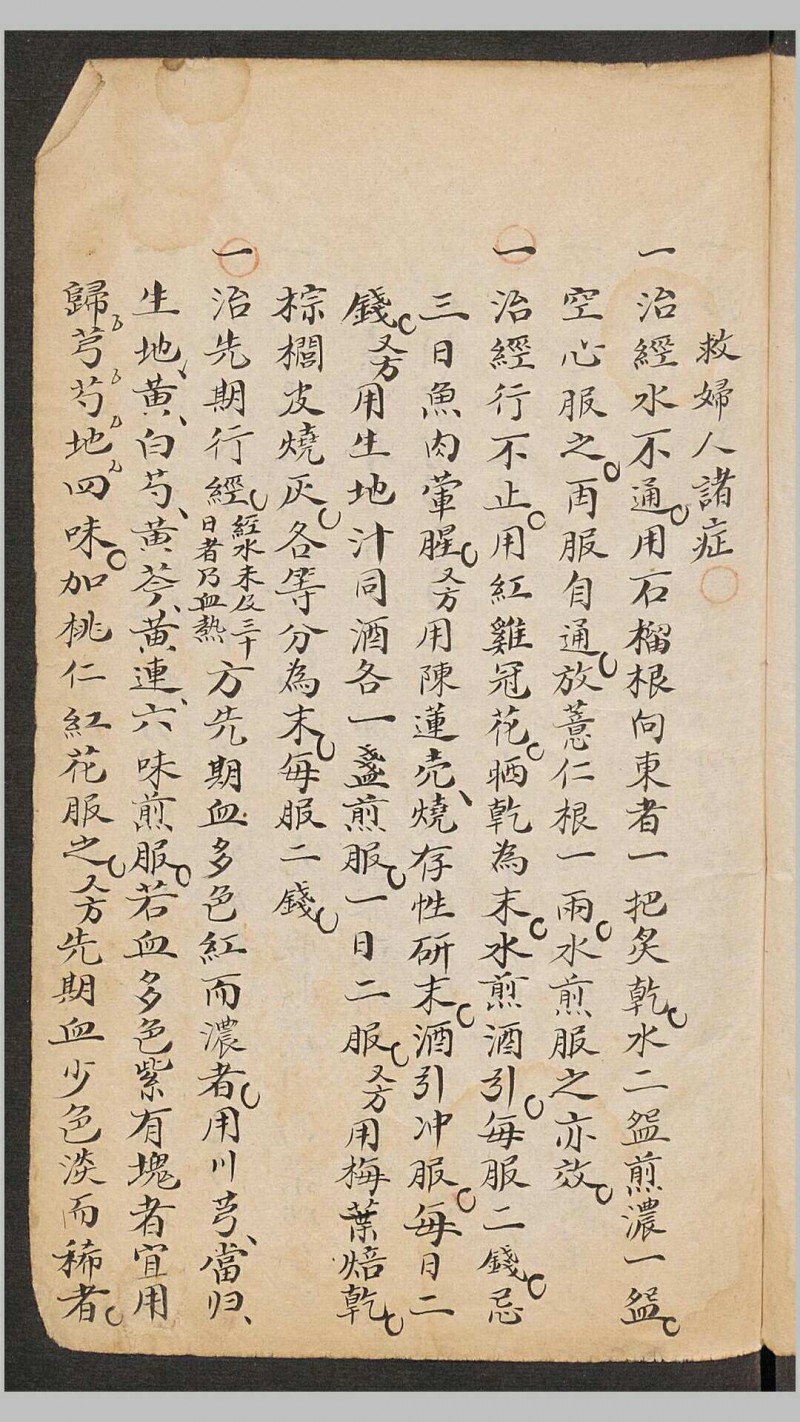 救婦人諸症
一治經水不通用石榴根向東者一把炙乾水二盌煎濃一盌
空心服之再服自通放薏仁根一兩水煎服之亦效
一治經行不止用紅雞冠花晒乾為末水煎酒引每服二錢忌
三日魚肉葷腥又方用陳蓮壳燒存性研末酒引冲服每日二
錢又方用生地汁同酒各一盞煎服一日二服又方用梅葉焙乾
棕櫚皮燒灰各等分為末每服二錢
一治先期行經經水未及三十日者乃血熱方先期血多色紅而濃者用川芎當归
生地黄白芍黄芩黄連六味煎服若血多色紫有塊者宜用
歸芎芍地四味加桃仁紅花服之又方先期血少色淡而稀者